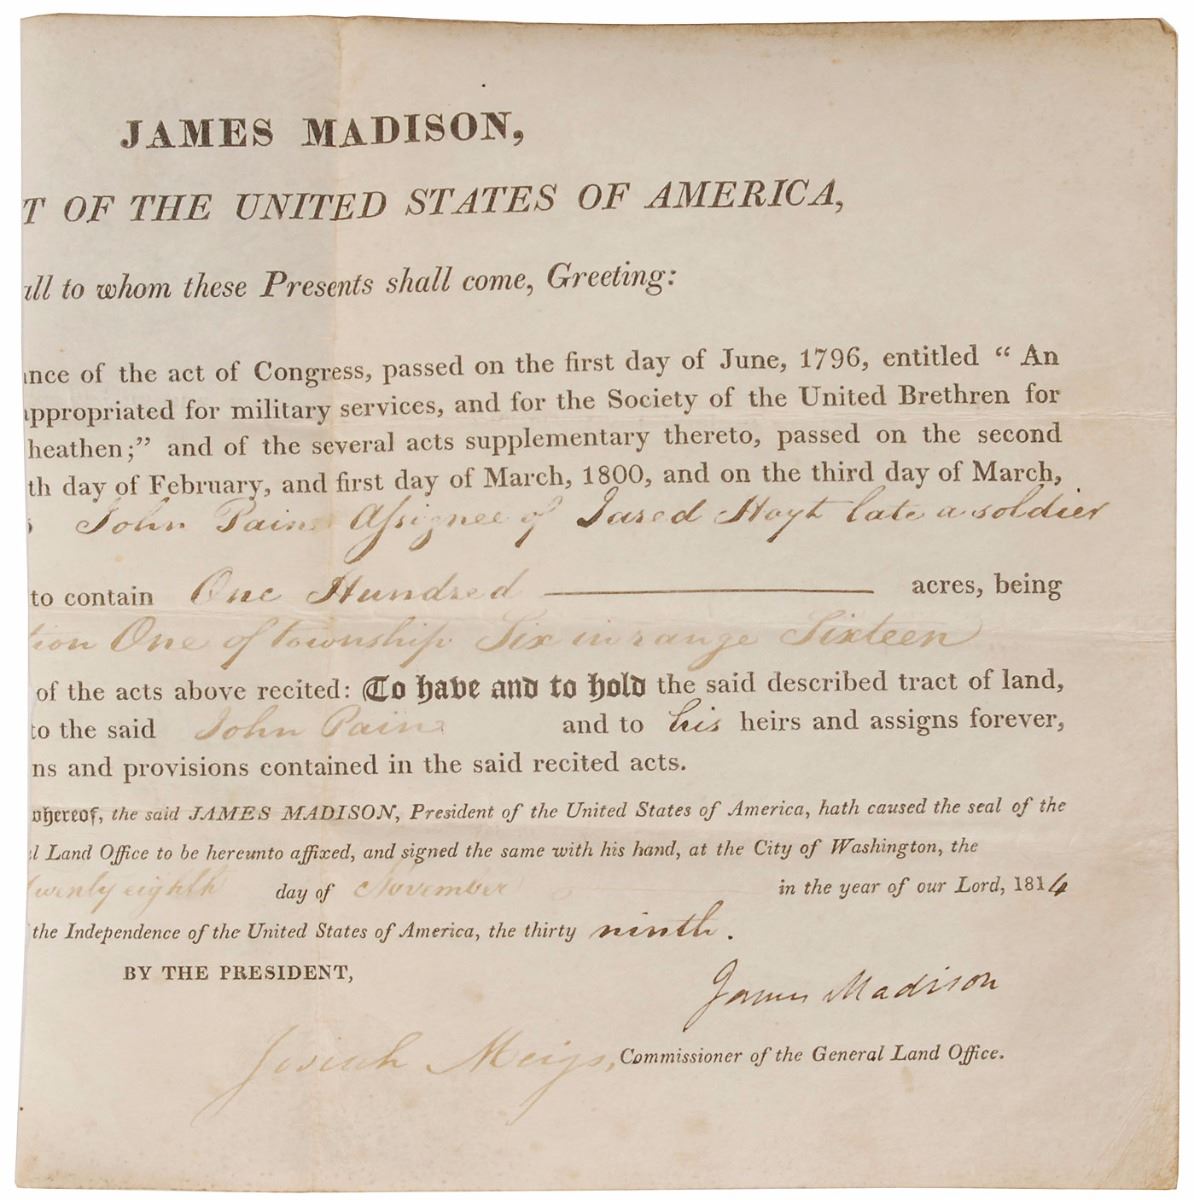 JAMES MADISON,
T OF THE UNITED STATES OF AMERICA,
all to whom these Presents shall come, Greeting:
ance of the act of Congress, passed on the first day of June, 1796, entitled “ An
appropriated for military services, and for the Society of the United Brethren for
heathen;” and of the several acts supplementary thereto, passed on the second
th day of February, and first day of March, 1800, and on the third day of March,
John Paine Assignee of Jared Hoyt late a soldier
to contain One Hundred acres, being
tion One of township Six in range Sixteen
of the acts above recited: To have and to hold the said described tract of land,
to the said John Paine and to his heirs and assigns forever,
ns and provisions contained in the said recited acts.
whereof, the said JAMES MADISON, President of the United States of America, hath caused the seal of the
l Land Office to be hereunto affixed, and signed the same with his hand, at the City of Washington, the
twenty eighth day of November in the year of our Lord, 1814
the Independence of the United States of America, the thirty ninth.
BY THE PRESIDENT,
James Madison
Josiah Meigs, Commissioner of the General Land Office.